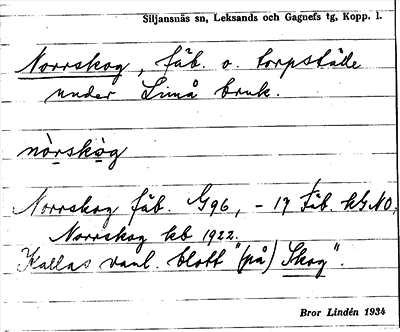 Siljansnäs sn, Leksands och Gagnefs tg, Kopp. l.
Norrskog, fäb. o. torpställe
under Limå bruk.
nòrskòg
Norrskog fäb. G96, - 17 fäb. kG.NO.
Norrskog kb 1922.
Kallas vanl. blott "(på) Skog".
Bror Lindén 1934